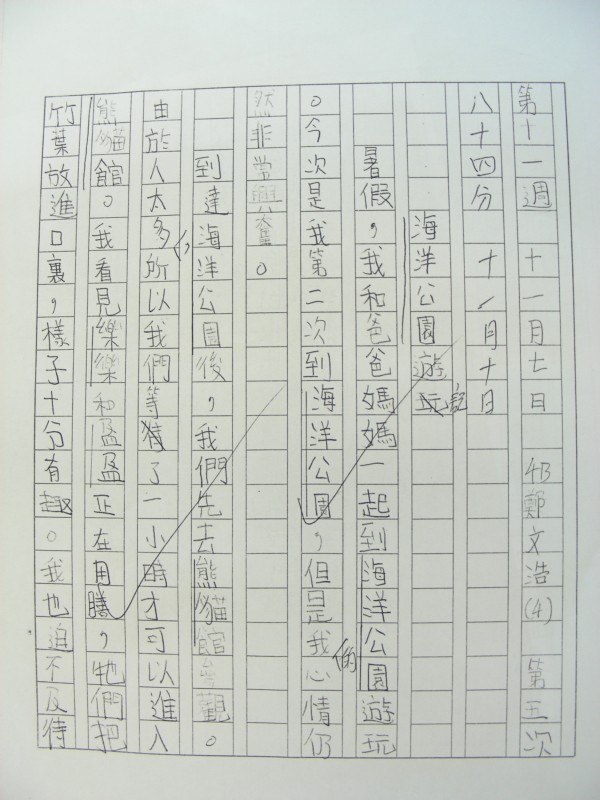 第十一週 十一月七日 4B鄭文浩(4) 第五次
八十四分 十一月十日
海洋公園遊玩記
暑假,我和爸爸媽媽一起到海洋公園遊玩
。今次是我第二次到海洋公園,但是我的心情仍
然非常興奮。
到達海洋公園後,我們先去熊貓館參觀。
由於人太多,所以我們等待了一小時才可以進入
熊貓館。我看見樂樂和盈盈正在用膳,牠們把
竹葉放進口裏,樣子十分有趣。我也迫不及待